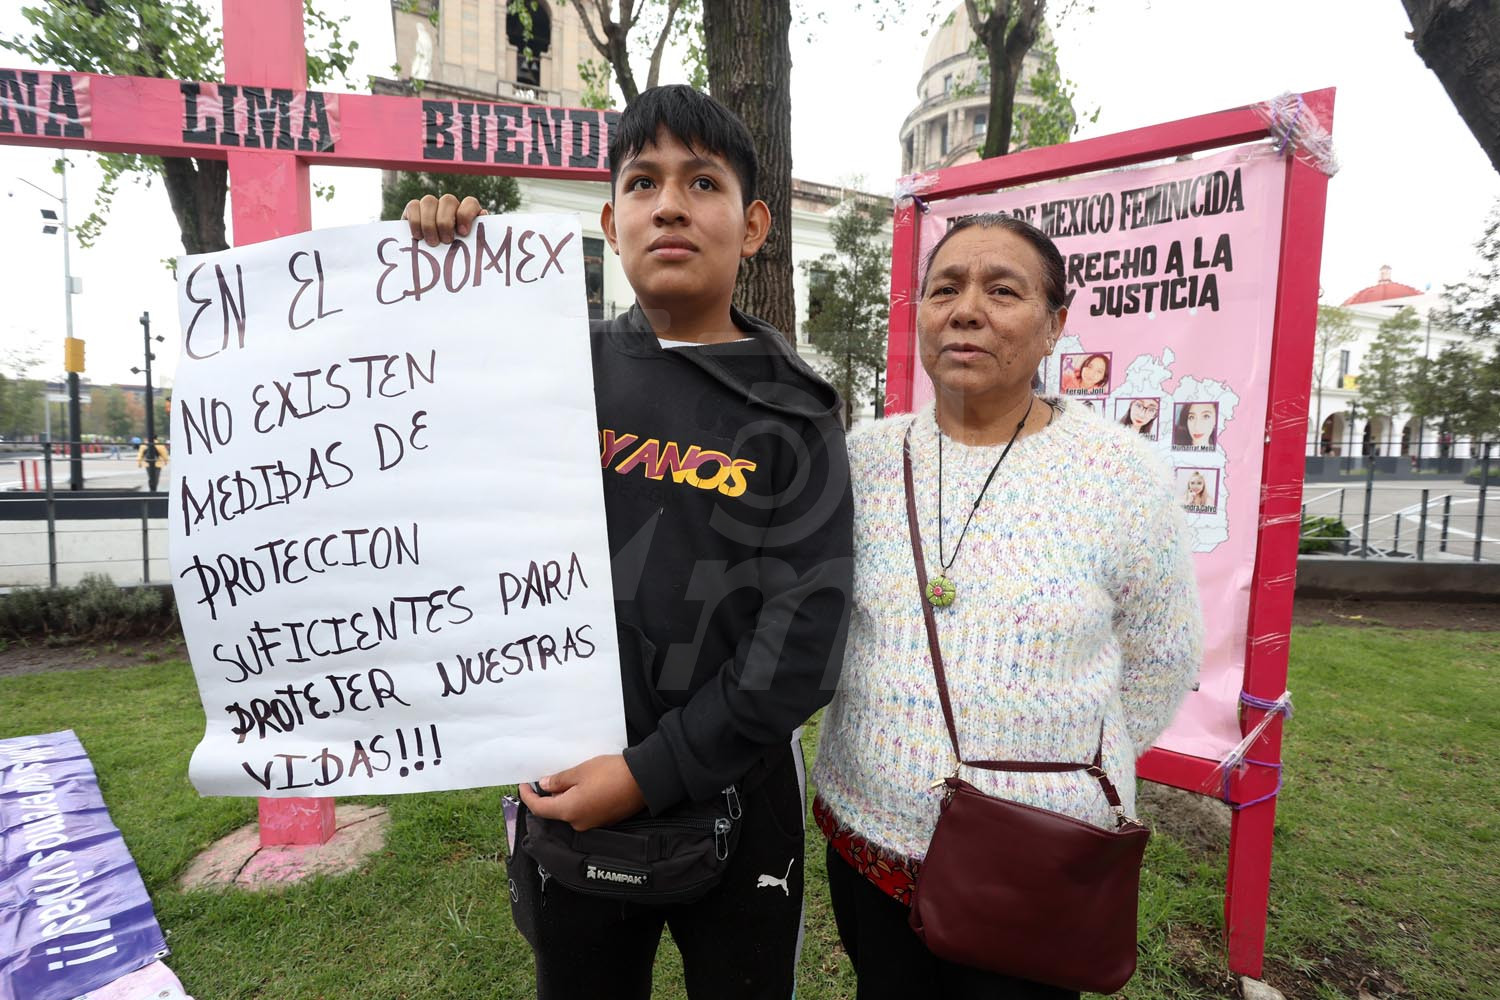 NA LIMA BUEND
EN EL EDOMEX
NO EXISTEN
MEDIDAS DE
PROTECCION
SUFICIENTES PARA
PROTEJER NUESTRAS
VIDAS!!!
DE MEXICO FEMINICIDA
DERECHO A LA
Y JUSTICIA
Fergie Joli
Montserrat Mella
YANOS
KAMPAK
vivas!!